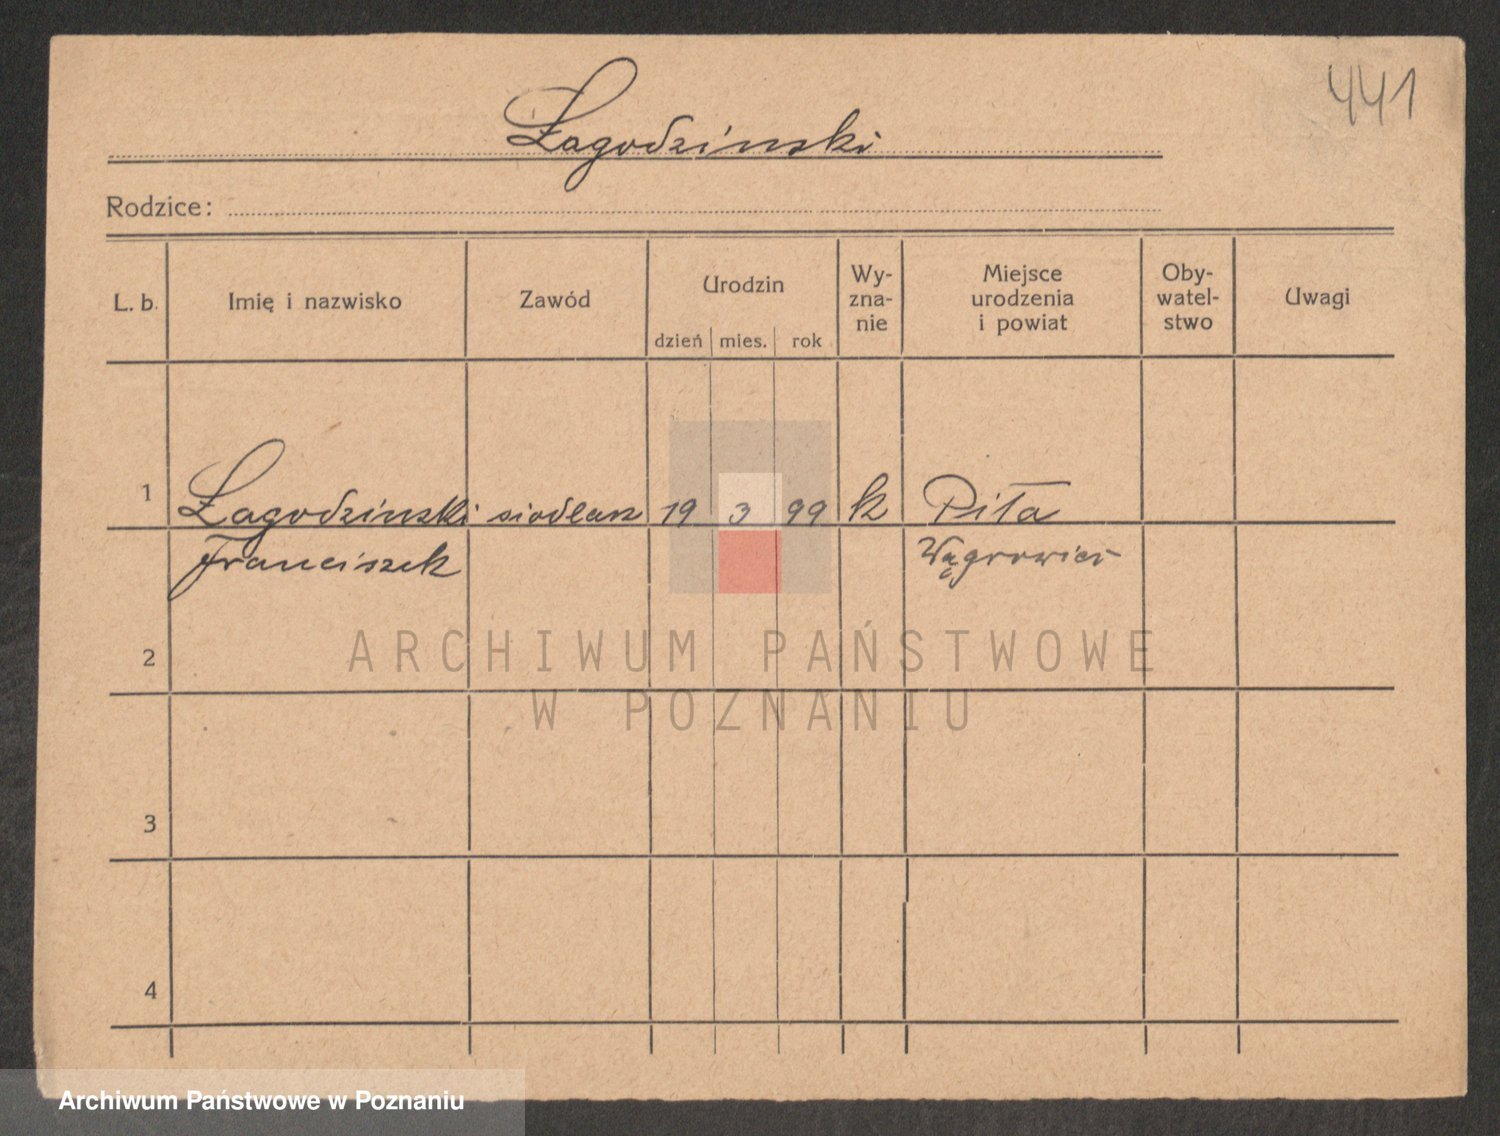 441
Łagodzinski
Rodzice:
L. b.
Imię i nazwisko
Zawód
Urodzin
dzień mies. rok
Wy-
zna-
nie
Miejsce
urodzenia
i powiat
Oby-
watel-
stwo
Uwagi
1 Łagodzinski siodlarz 19 3 99 k Piła
Franciszek Wągrowiec
2
ARCHIWUM PAŃSTWOWE
W POZNANIU
3
4
Archiwum Państwowe w Poznaniu